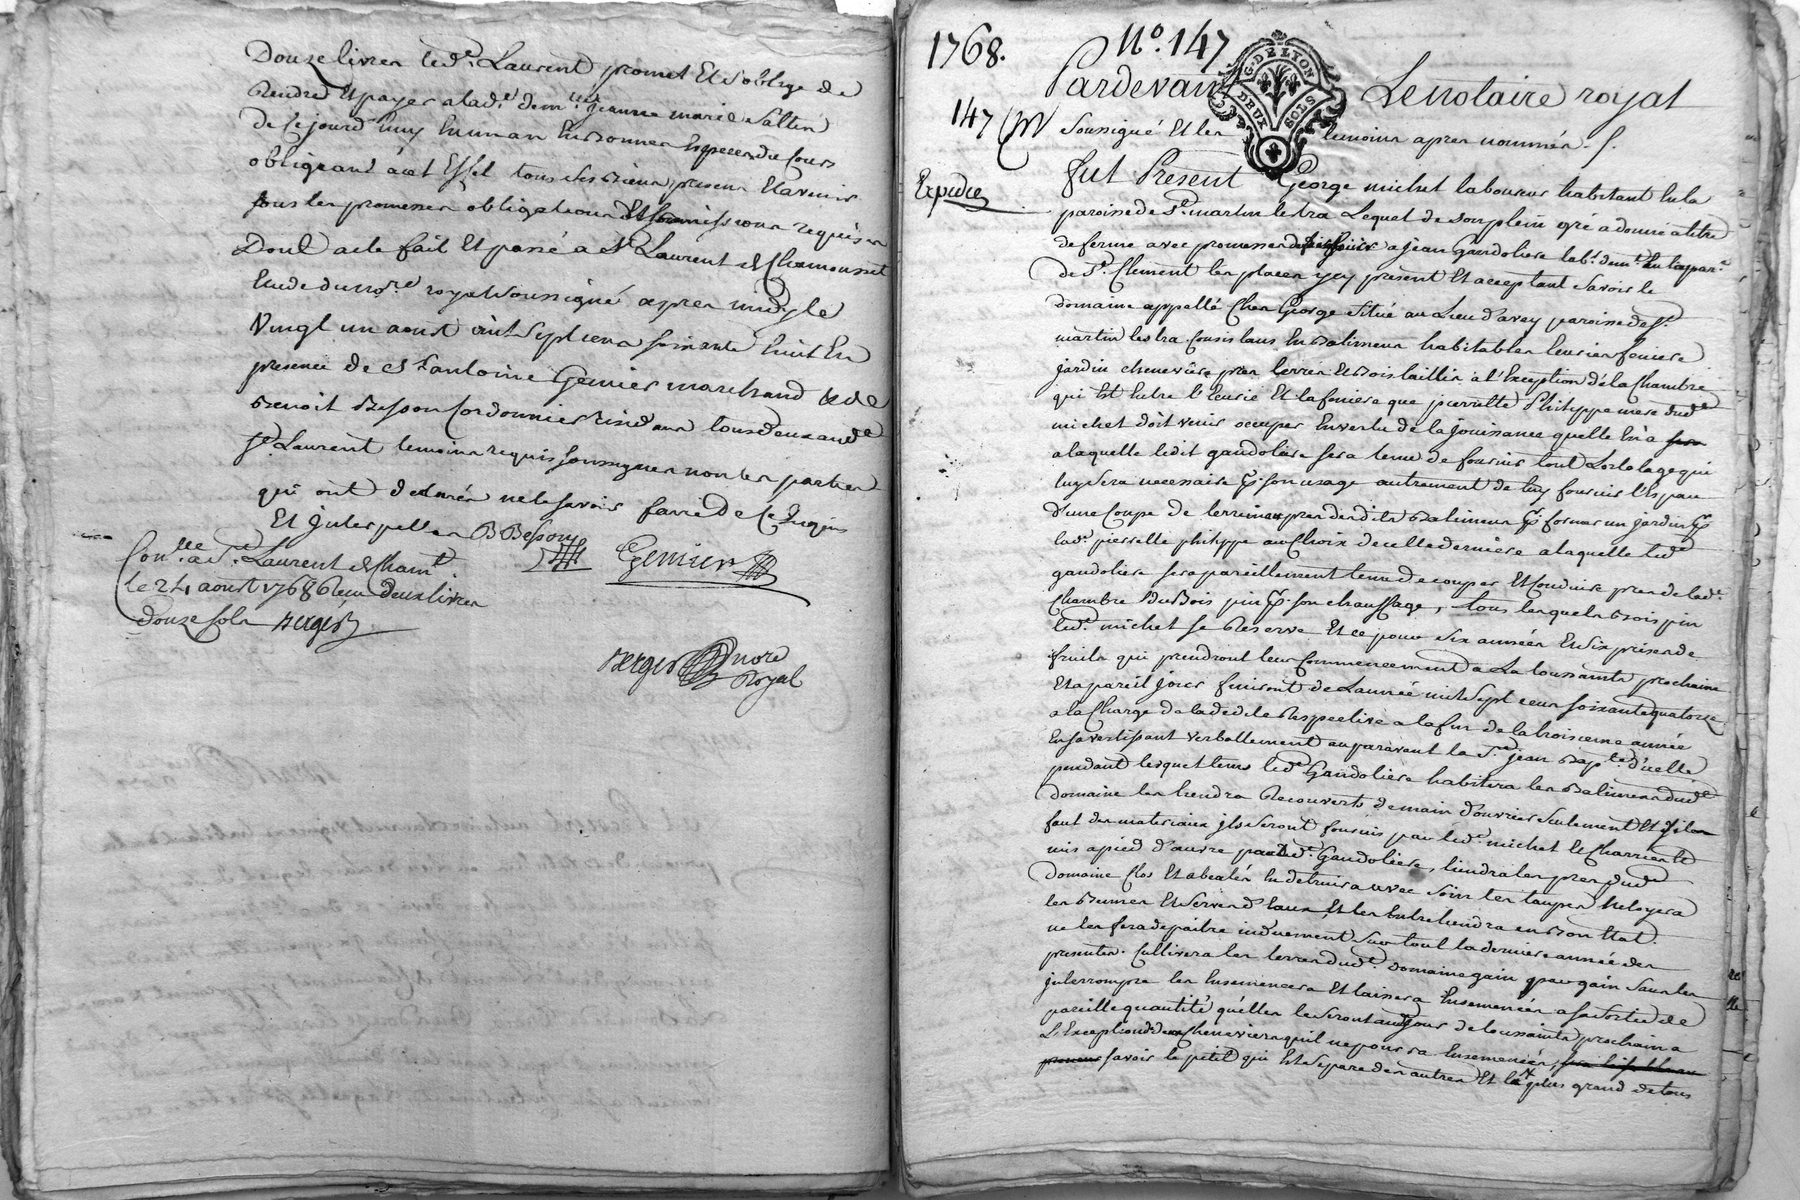 Douze livres led.t Laurent promet et s'oblige de
rendre et payer a lad.e dem.lle jeanne marie
de ce jourd'huy en un an en bonnes especes de cours
obligeant à cet effet tous ses biens presens et avenir
sous les promesses obligations et soumissions requises
Dont acte fait et passé a S.t Laurent de Chamousset
Etude du no.re royal soussigné apres midy le
Vingt un aoust mil sept cens soixante huit En
presence de s.r antoine Genier marchand & de
Benoit Besson Cordonnier resid.ans tous deux aud.t
S.t Laurent temoins requis soussignes non les parties
qui ont declarés ne le savoir faire De ce Enquis
Et interpellés BBesson
Genier
Con.lle a S.t Laurent de Cham.t
le 24 aout 1768 Reçu deux livres
douze sols Berger
Berger nore
Royal
1768. N.o 147
G. DE LYON
DEUX SOLS
Pardevant Le notaire royal
147
soussigné et les temoins apres nommés.
Expedié
fut Present George michel laboureur habitant en la
paroisse de S.t martin lestra Lequel de son plein gré a donné a titre
de ferme avec promesse de faire jouir a jean Gandoliere lab.r dem.t en la par.e
de S.t Clement les places icy present et acceptant savoir le
domaine appellé Chez George situé au Lieu d'avey paroisse de S.t
martin lestra Consistant en Batimens habitables Ecuries feniere
jardin cheneviere pres terres et bois taillis à l'Exception de la Chambre
qui Est entre l'Ecurie Et la feniere que pierrette Philippe mere dud.t
michel doit venir occuper en vertu de la jouissance quelle en a
a laquelle ledit gandoliere sera tenu de fournir tout Lortolage qui
luy sera necessaire p.r son usage autrement de luy fournir l'Espace
d'une Coupe de terrein pres desdits Batimens p.r former un jardin p.r
lad.e pierrette philippe au Choix de celle derniere a laquelle led.t
gandoliere sera pareillement tenu de couper Et Conduire pres de lad.e
Chambre Du Bois pin p.r son chauffage, tous lesquels bois pin
led.t michel se Reserve Et ce pour six années Et six prises de
fruits qui prendront leur Commencement a La toussaints prochaine
Et a pareil jour finiront de Lannée mil sept cens soixante quatorze
a la Charge de la dedite Respective a la fin de la troisieme année
En s'avertissant verballement auparavant la S.t jean Bap.te d'icelle
pendant lesquel tems led.t Gandoliere habitera les Batimens dud.t
domaine les tiendra Recouverts de main d'ouvrier seulement Et s'il
faut des materiaux ils seront fournis par led.t michel le Charriera le
mis a pied d'œuvre par led.t Gandoliere, tiendra les pres dud.t
domaine Clos Et abealés En detruira avec soin les taupes Netoyera
les Beurres Et serves d'Eaux, Et les Entretiendra en Bon Etat.
ne les fera depaitre induement sur tout la derniere année des
presentes. Cultivera les terres dud.t domaine gain par gain sans les
interrompre les Ensemencera Et laissera Ensemencés a sa sortie de
pareille quantité quelles le seront au jour de toussaints prochain a
L'Exception des Chenevieres quil ne pourra Ensemencer,
savoir le petit qui Est separe des autres Et le plus grand de tous